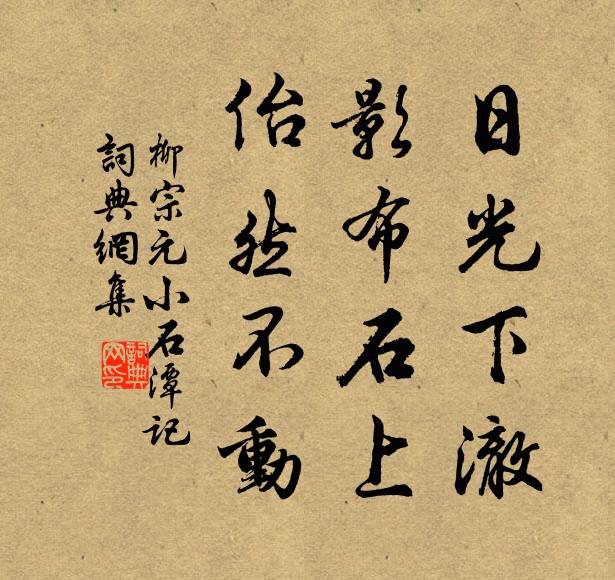 日光下澈
影布石上
佁然不動
柳宗元小石潭记
詞典網集
詞典网印